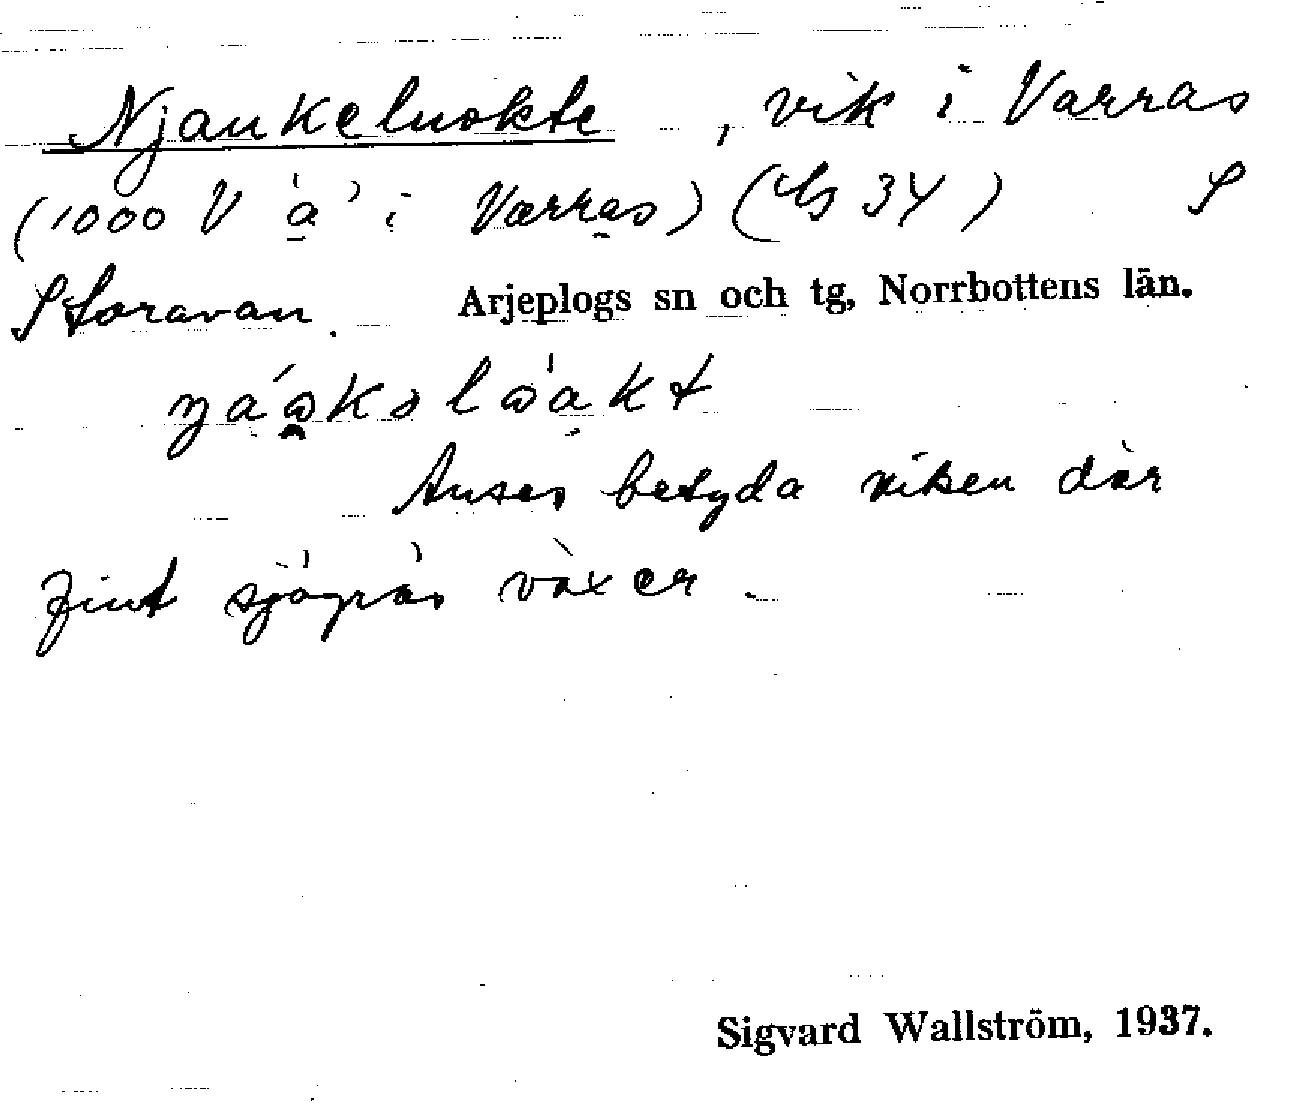 Njaukeluokte, vik i Varras
(1000 V a' i Varras) ( 34) S
Storavan. Arjeplogs sn och tg, Norrbottens län.
Anses betyda viken där
fint sjögräs växer.
Sigvard Wallström, 1937.